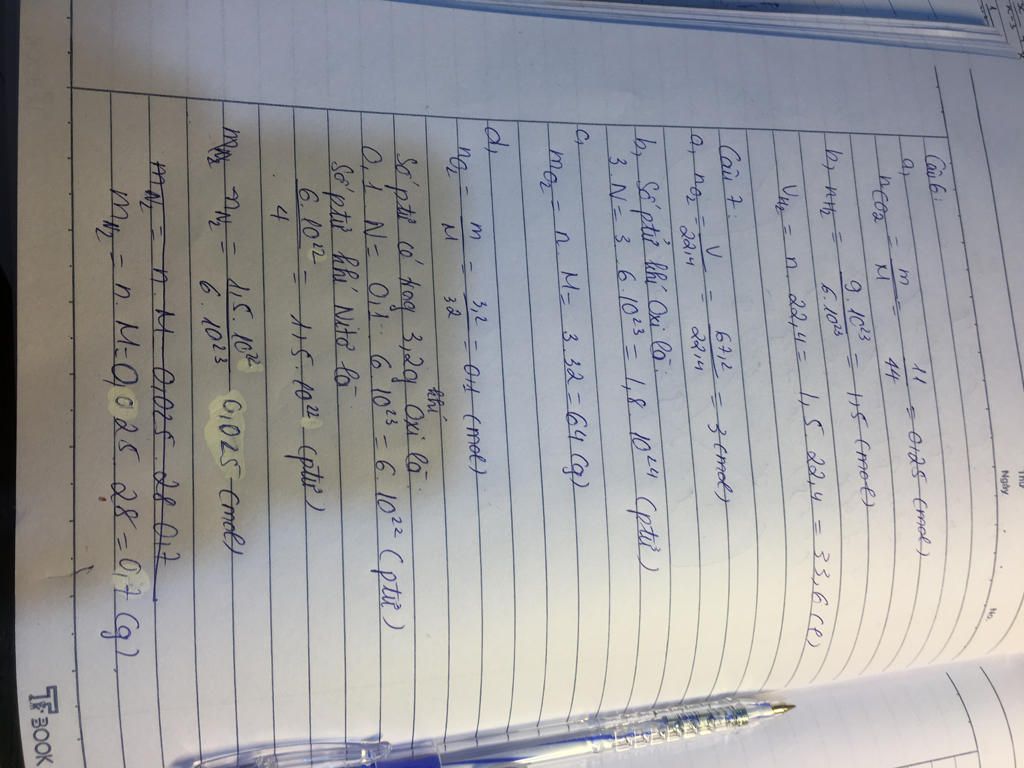 Thứ
Ngày
No.
Câu 6:
a, nCO2 = m/M = 11/44 = 0,25 (mol)
b, nH2 = 9.10^23/6.10^23 = 1,5 (mol)
VH2 = n. 22,4 = 1,5. 22,4 = 33,6 (l)
Câu 7:
a, nO2 = V/22,4 = 67,2/22,4 = 3 (mol)
b, Số ptử khí Oxi là:
3. N = 3. 6.10^23 = 1,8. 10^24 (ptử)
c, mO2 = n. M = 3. 32 = 64 (g)
d, nO2 = m/M = 3,2/32 = 0,1 (mol)
Số ptử có trog 3,2g khí Oxi là:
0,1. N = 0,1. 6.10^23 = 6.10^22 (ptử)
Số ptử khí Nitơ là:
6.10^22/4 = 1,5.10^22 (ptử)
nN2 = 1,5.10^22/6.10^23 = 0,025 (mol)
mN2 = n. M = 0,025. 28 0,7
mN2 = n. M = 0,025. 28 = 0,7 (g)
T BOOK